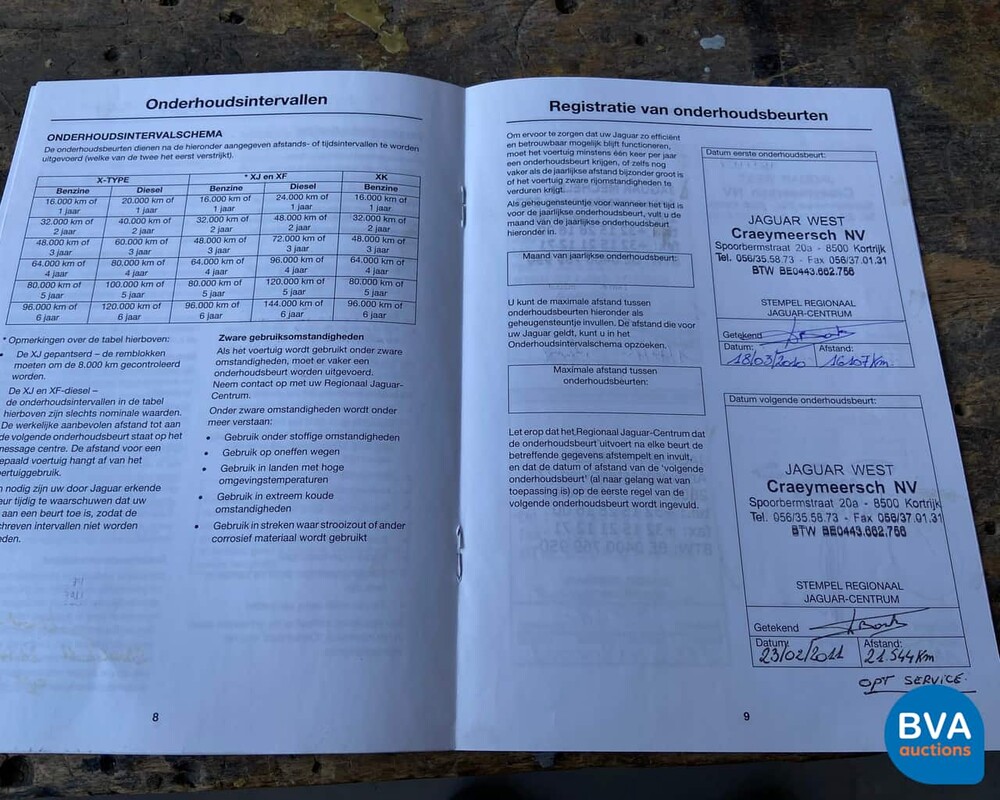 Onderhoudsintervallen
ONDERHOUDSINTERVALSCHEMA
De onderhoudsbeurten dienen na de hieronder aangegeven afstands- of tijdsintervallen te worden
uitgevoerd (welke van de twee het eerst verstrijkt).
X-TYPE * XJ en XF XK
Benzine Diesel Benzine Diesel Benzine
16.000 km of 20.000 km of 16.000 km of 24.000 km of 16.000 km of
1 jaar 1 jaar 1 jaar 1 jaar 1 jaar
32.000 km of 40.000 km of 32.000 km of 48.000 km of 32.000 km of
2 jaar 2 jaar 2 jaar 2 jaar 2 jaar
48.000 km of 60.000 km of 48.000 km of 72.000 km of 48.000 km of
3 jaar 3 jaar 3 jaar 3 jaar 3 jaar
64.000 km of 80.000 km of 64.000 km of 96.000 km of 64.000 km of
4 jaar 4 jaar 4 jaar 4 jaar 4 jaar
80.000 km of 100.000 km of 80.000 km of 120.000 km of 80.000 km of
5 jaar 5 jaar 5 jaar 5 jaar 5 jaar
96.000 km of 120.000 km of 96.000 km of 144.000 km of 96.000 km of
6 jaar 6 jaar 6 jaar 6 jaar 6 jaar
* Opmerkingen over de tabel hierboven:
• De XJ gepantserd – de remblokken
moeten om de 8.000 km gecontroleerd
worden.
De XJ en XF-diesel –
de onderhoudsintervallen in de tabel
hierboven zijn slechts nominale waarden.
De werkelijke aanbevolen afstand tot aan
de volgende onderhoudsbeurt staat op het
message centre. De afstand voor een
epaald voertuig hangt af van het
ertuiggebruik.
n nodig zijn uw door Jaguar erkende
eur tijdig te waarschuwen dat uw
aan een beurt toe is, zodat de
hreven intervallen niet worden
den.
Zware gebruiksomstandigheden
Als het voertuig wordt gebruikt onder zware
omstandigheden, moet er vaker een
onderhoudsbeurt worden uitgevoerd.
Neem contact op met uw Regionaal Jaguar-
Centrum.
Onder zware omstandigheden wordt onder
meer verstaan:
• Gebruik onder stoffige omstandigheden
• Gebruik op oneffen wegen
• Gebruik in landen met hoge
omgevingstemperaturen
• Gebruik in extreem koude
omstandigheden
• Gebruik in streken waar strooizout of ander
corrosief materiaal wordt gebruikt
8
Registratie van onderhoudsbeurten
Om ervoor te zorgen dat uw Jaguar zo efficiënt
en betrouwbaar mogelijk blijft functioneren,
moet het voertuig minstens één keer per jaar
een onderhoudsbeurt krijgen, of zelfs nog
vaker als de jaarlijkse afstand bijzonder groot is
of het voertuig zware rijomstandigheden te
verduren krijgt.
Als geheugensteuntje voor wanneer het tijd is
voor de jaarlijkse onderhoudsbeurt, vult u de
maand van de jaarlijkse onderhoudsbeurt
hieronder in.
Maand van jaarlijkse onderhoudsbeurt:
U kunt de maximale afstand tussen
onderhoudsbeurten hieronder als
geheugensteuntje invullen. De afstand die voor
uw Jaguar geldt, kunt u in het
Onderhoudsintervalschema opzoeken.
Maximale afstand tussen
onderhoudsbeurten:
Let erop dat het Regionaal Jaguar-Centrum dat
de onderhoudsbeurt uitvoert na elke beurt de
betreffende gegevens afstempelt en invult,
en dat de datum of afstand van de 'volgende
onderhoudsbeurt' (al naar gelang wat van
toepassing is) op de eerste regel van de
volgende onderhoudsbeurt wordt ingevuld.
Datum eerste onderhoudsbeurt:
JAGUAR WEST
Craeymeersch NV
Spoorbermstraat 20a - 8500 Kortrijk
Tel. 056/35.58.73 - Fax 056/37.01.31
BTW BE0443.662.756
STEMPEL REGIONAAL
JAGUAR-CENTRUM
Getekend
Datum: Afstand:
18/03/2010 16107Km
Datum volgende onderhoudsbeurt:
JAGUAR WEST
Craeymeersch NV
Spoorbermstraat 20a - 8500 Kortrijk
Tel. 056/35.58.73 - Fax 056/37.01.31
BTW BE0443.662.756
STEMPEL REGIONAAL
JAGUAR-CENTRUM
Getekend
Datum: Afstand:
23/02/2011 21.544Km
OPT SERVICE.
9
BVA
auctions